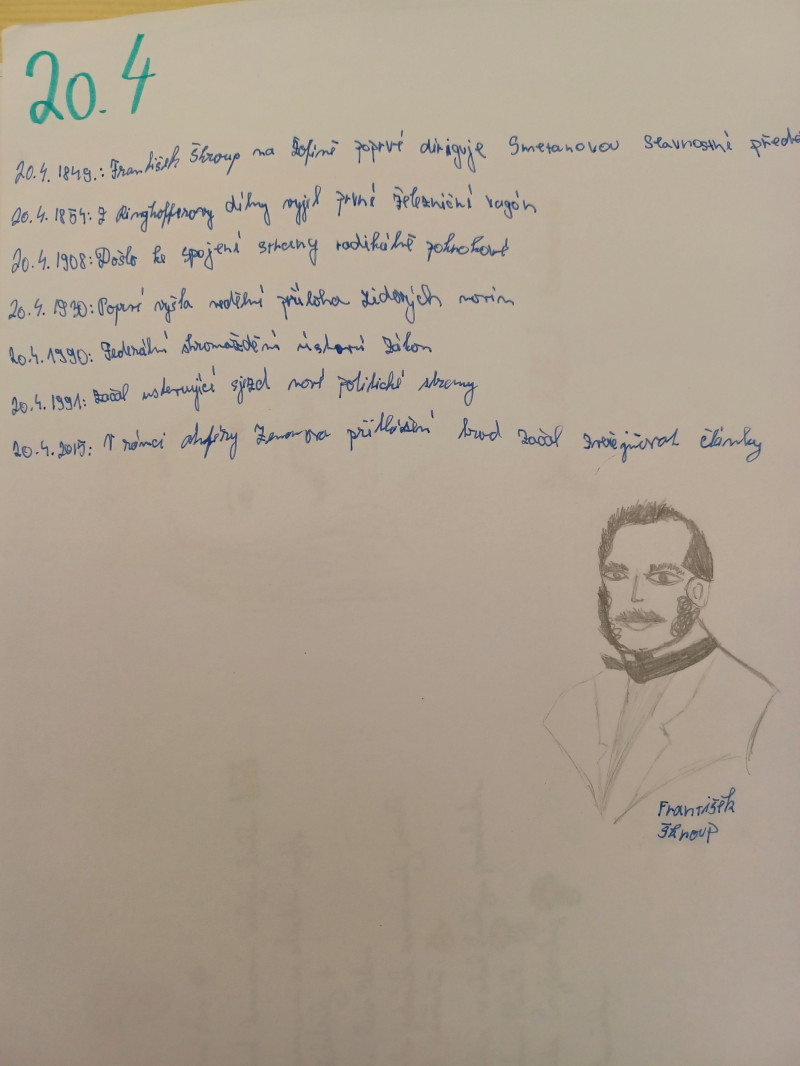 20.4
20.4. 1849.: František Škroup na Žofíně poprvé diriguje Smetanovou slavnostní předeh
20.4. 1854: Z Ringhofferovy dílny vyjel první železniční vagón
20.4. 1908: Došlo ke spojení strany radikálně pokrokové
20.4. 1930: Poprvé vyšla nedělní příloha Lidových novin
20.4. 1990: Federální shromáždění ústavní zákon
20.4. 1991: začal ustavující sjezd nové politické strany
20.4. 2015: V rámci aféry Zemanova přihlášení hrad začal zveřejňovat články
František
Škroup